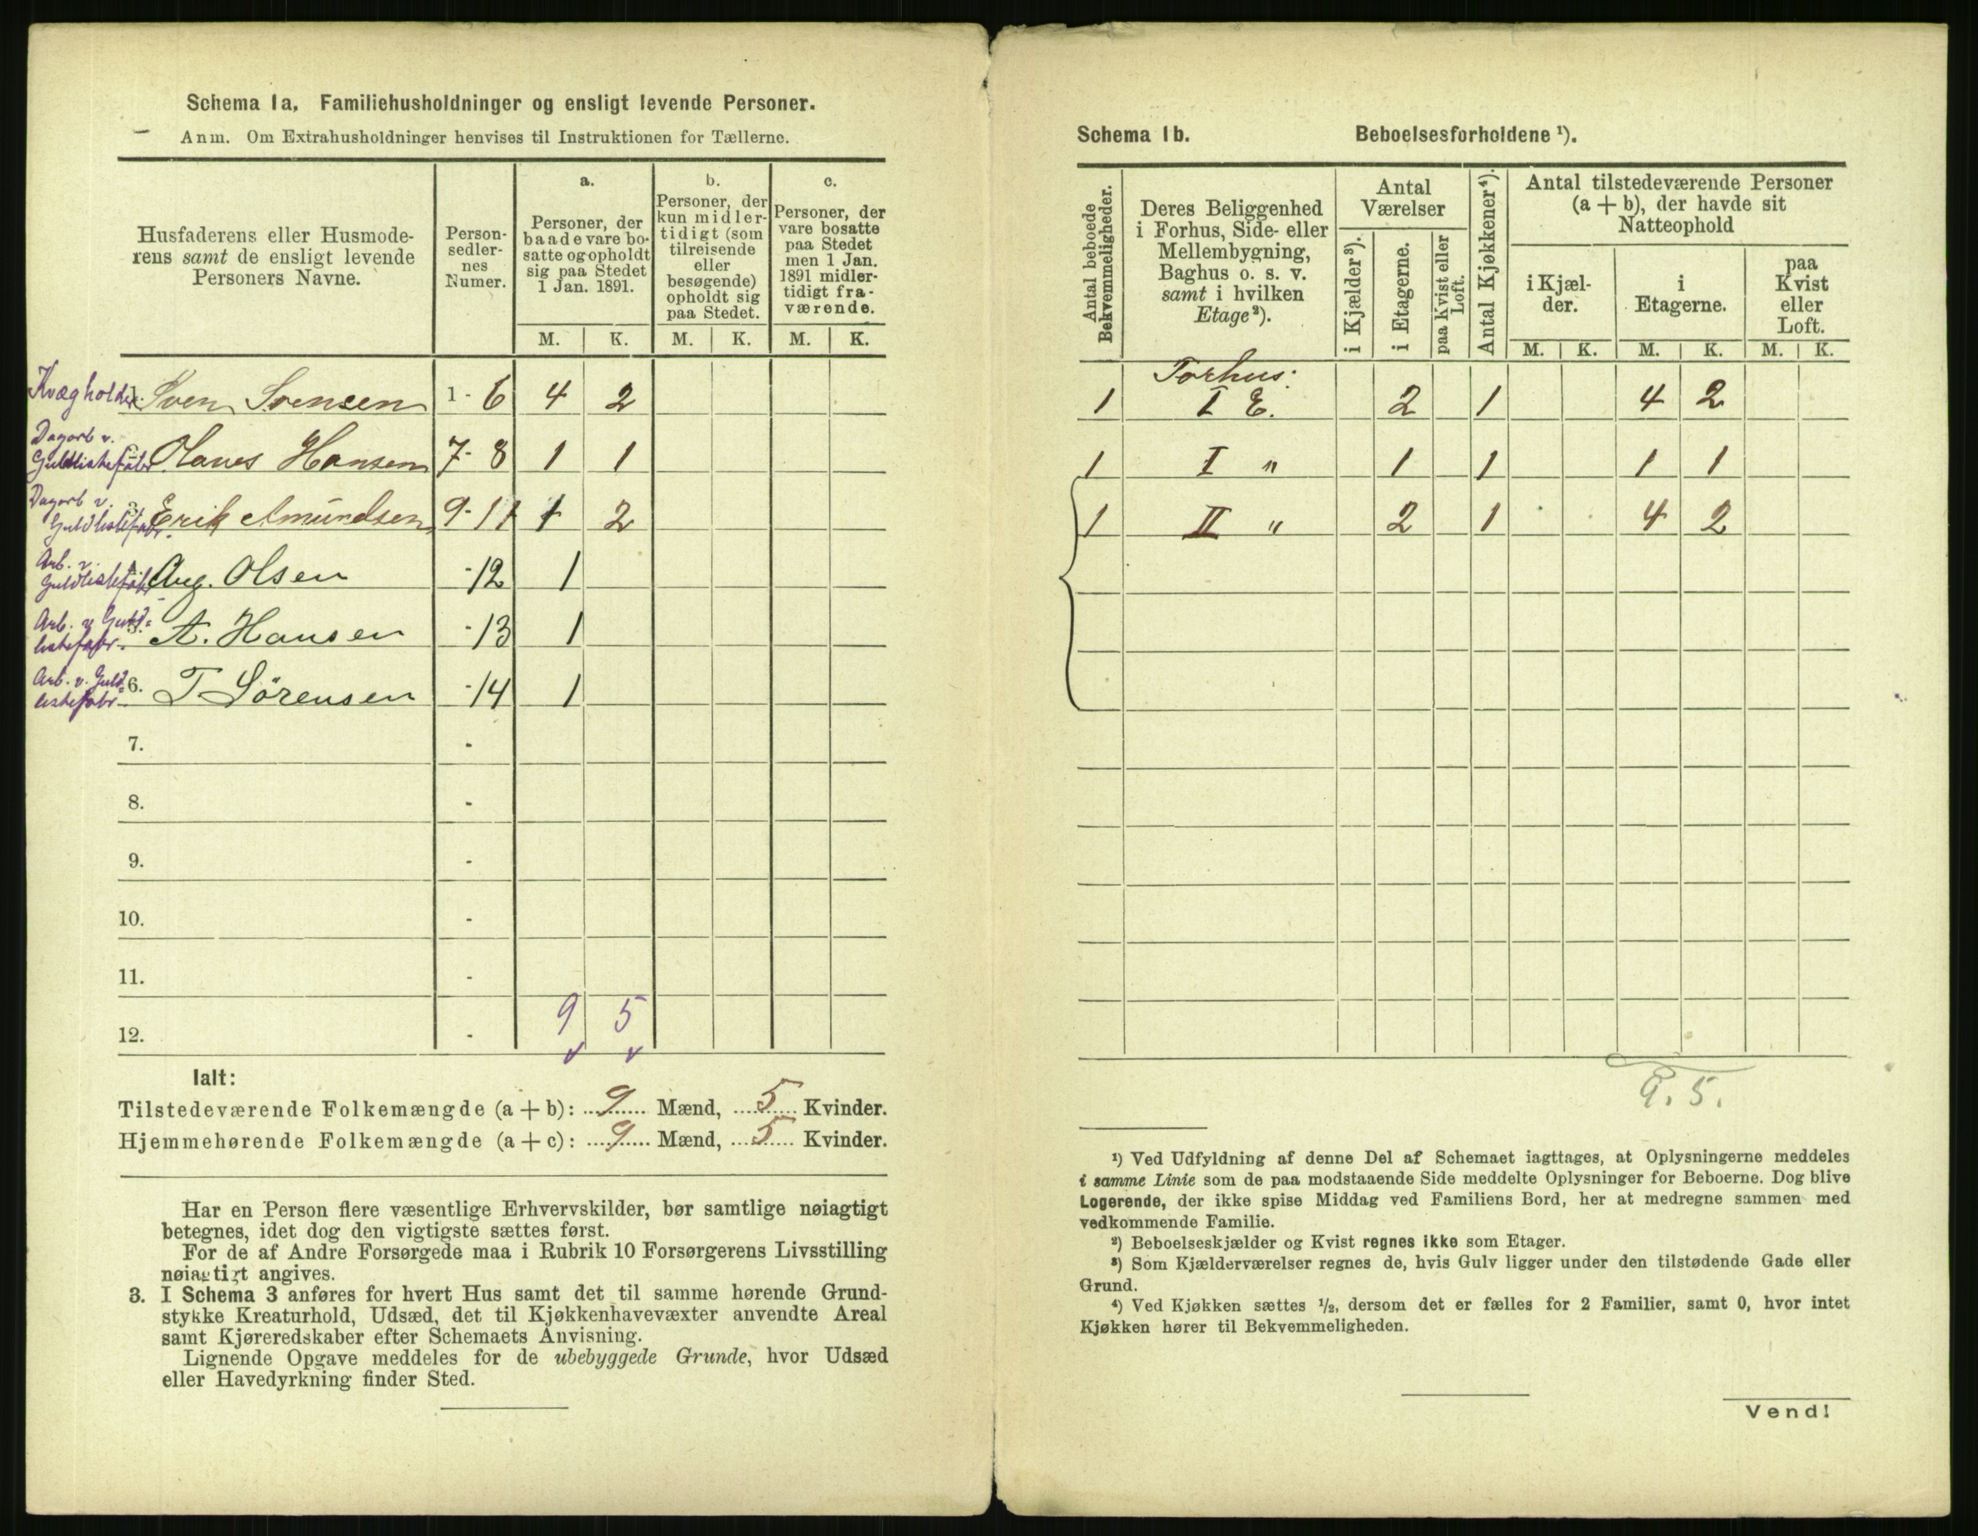 Schema 1a. Familiehusholdninger og ensligt levende Personer.
Anm. Om Extrahusholdninger henvises til Instruktionen for Tællerne.
Husfaderens eller Husmode-
rens samt de ensligt levende
Personers Navne.
Person-
sedler-
nes
Numer.
a.
Personer, der
baade vare bo-
satte og opholdt
sig paa Stedet
1 Jan. 1891.
b.
Personer, der
kun midler-
tidigt (som
tilreisende
eller
besøgende)
opholdt sig
paa Stedet.
c.
Personer, der
vare bosatte
paa Stedet
men 1 Jan.
1891 midler-
tidigt fra-
værende.
M. K. M. K. M. K.
Kvægholder Sven Svensen 1 - 6 4 2
Dagarb v.
Guldlistefabr. Olaves Hansen 7 - 8 1 1
Dagarb v.
Guldlistefabr. Erik Amundsen 9 - 11 1 2
Arb. v.
Guldlistefabr Aug. Olsen - 12 1
Arb. v Guld=
listefabr. A. Hansen - 13 1
Arb. v. Guld=
listefabr 6. T. Sörensen - 14 1
7. -
8. -
9. -
10. -
11. -
9 5
12. -
Ialt:
Tilstedeværende Folkemængde (a + b): 9 Mænd, 5 Kvinder.
Hjemmehørende Folkemængde (a + c): 9 Mænd, 5 Kvinder.
Har en Person flere væsentlige Erhvervskilder, bør samtlige nøiagtigt
betegnes, idet dog den vigtigste sættes først.
For de af Andre Forsørgede maa i Rubrik 10 Forsørgerens Livsstilling
nøiagtigt angives.
3. I Schema 3 anføres for hvert Hus samt det til samme hørende Grund-
stykke Kreaturhold, Udsæd, det til Kjøkkenhavevæxter anvendte Areal
samt Kjøreredskaber efter Schemaets Anvisning.
Lignende Opgave meddeles for de ubebyggede Grunde, hvor Udsæd
eller Havedyrkning finder Sted.
Schema 1b. Beboelsesforholdene ¹).
Antal beboede
Bekvemmeligheder.
Deres Beliggenhed
i Forhus, Side- eller
Mellembygning,
Baghus o. s. v.
samt i hvilken
Etage²).
Antal
Værelser
i Kjælder³).
i Etagerne.
paa Kvist eller
Loft.
Antal Kjøkkener⁴).
Antal tilstedeværende Personer
(a + b), der havde sit
Natteophold
i Kjæl-
der.
i
Etagerne.
paa
Kvist
eller
Loft.
M. K. M. K. M. K.
Forhus:
1 I E. 2 1 4 2
1 I " 1 1 1 1
1 II " 2 1 4 2
9. 5.
¹) Ved Udfyldning af denne Del af Schemaet iagttages, at Oplysningerne meddeles
i samme Linie som de paa modstaaende Side meddelte Oplysninger for Beboerne. Dog blive
Logerende, der ikke spise Middag ved Familiens Bord, her at medregne sammen med
vedkommende Familie.
²) Beboelseskjælder og Kvist regnes ikke som Etager.
³) Som Kjælderværelser regnes de, hvis Gulv ligger under den tilstødende Gade eller
Grund.
⁴) Ved Kjøkken sættes ½, dersom det er fælles for 2 Familier, samt 0, hvor intet
Kjøkken hører til Bekvemmeligheden.
Vend!